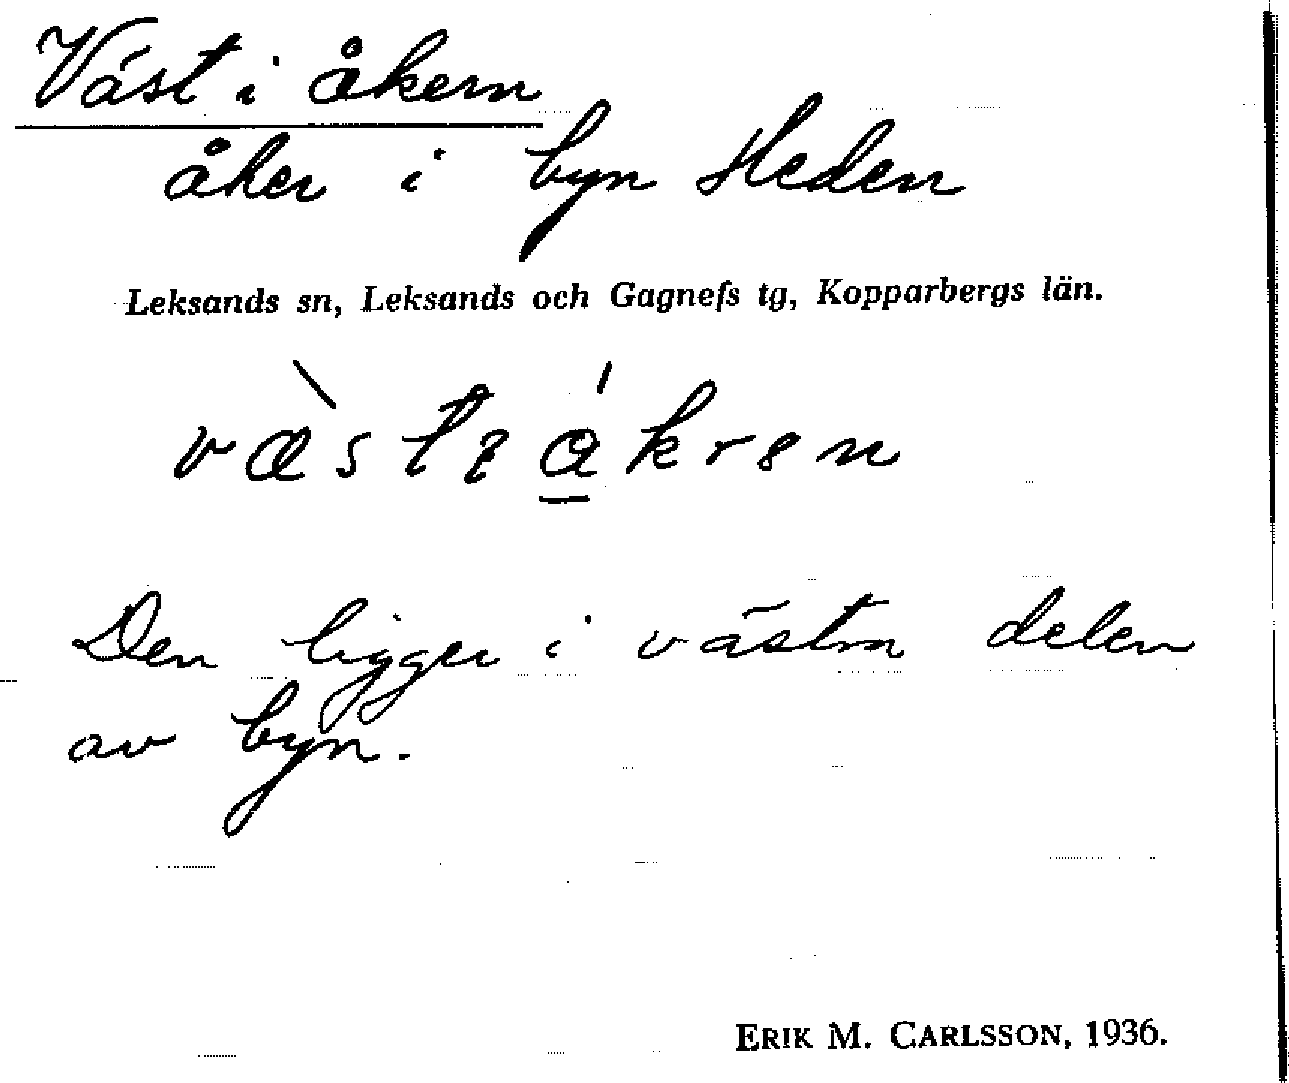 Väst i åkern
åker i byn Heden
Leksands sn, Leksands och Gagnefs tg, Kopparbergs län.
Den ligger i västra delen
av byn.
ERIK M. CARLSSON, 1936.